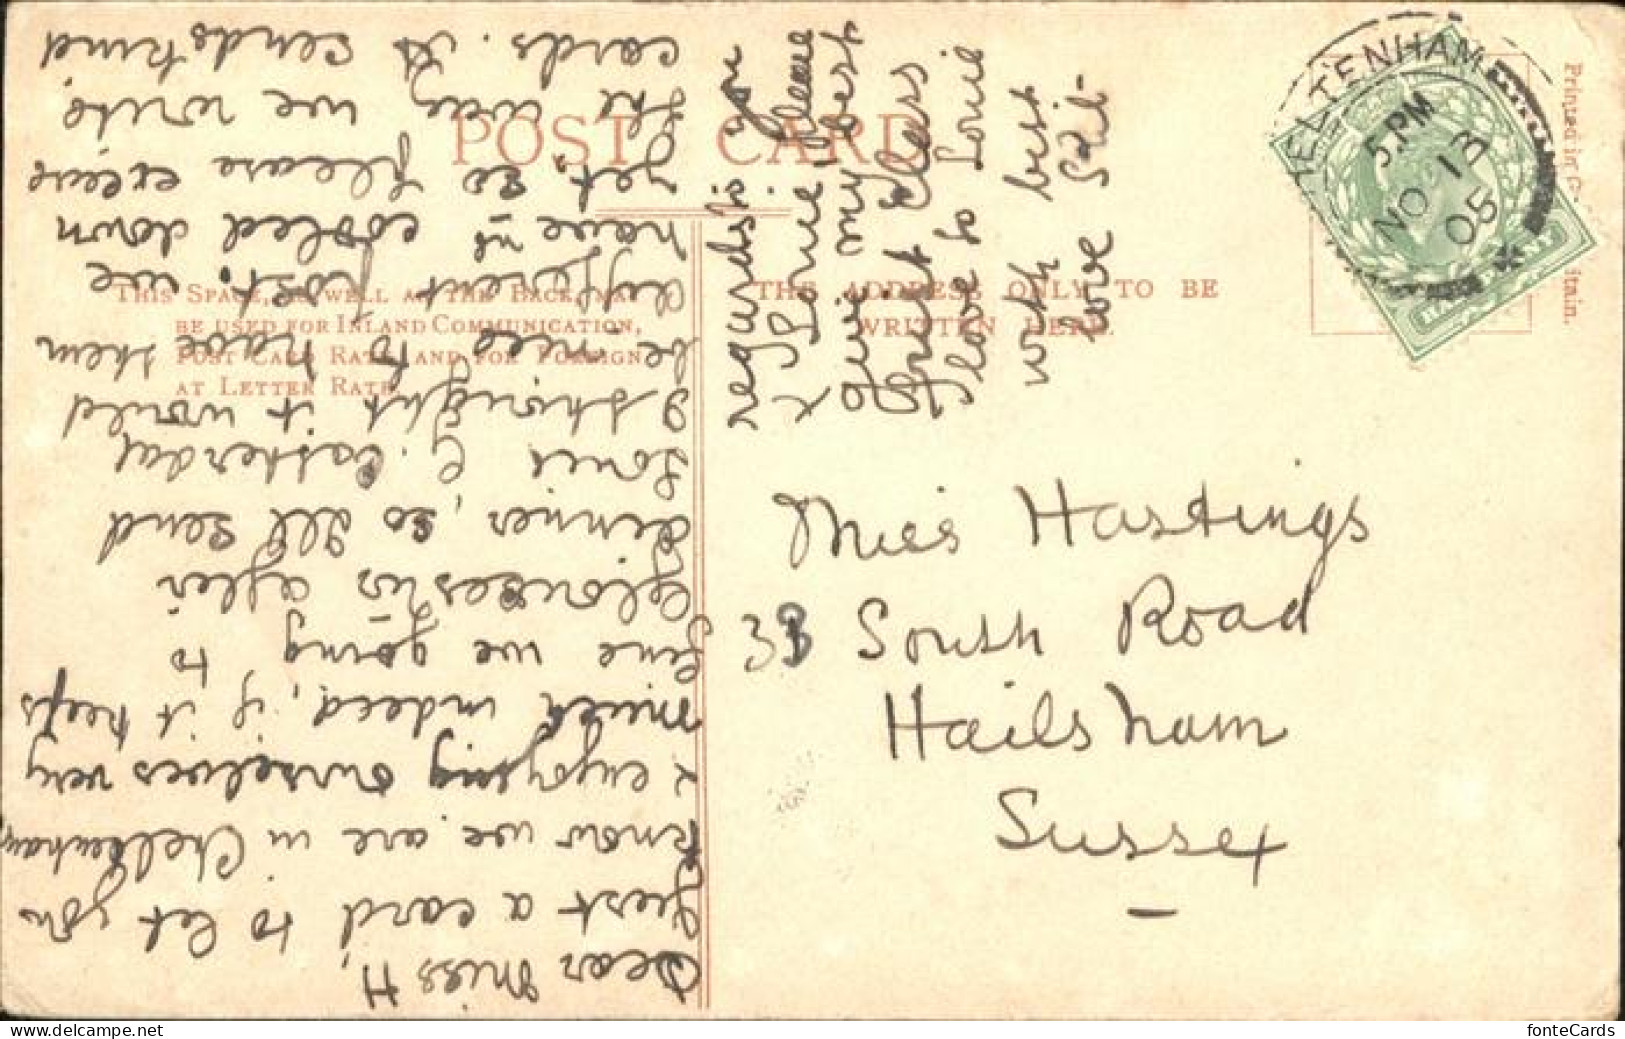 POST CARD
THIS SPACE, AS WELL AS THE BACK, MAY
BE USED FOR INLAND COMMUNICATION,
POST CARD RATE, AND FOR FOREIGN
AT LETTER RATE.
THE ADDRESS ONLY TO BE
WRITTEN HERE.
Printed in
itain.
CHELTENHAM
5.PM
NO 13
05
HALFPENNY
Dear Miss H,
Just a card to let you
know we are in Cheltenham,
& enjoying ourselves very
much indeed, if it keeps
fine we going to
after
dinner, so I'll send
I thought it would
be nice to have them
different post. we
have nt cooled down
yet, so please excuse
the way we write
cards. A. sends kind
regards to you
& Louie. Please
give my best
love to Louie
with best
love
Miss Hastings
South Road
Hailsham
Sussex
fonteCards